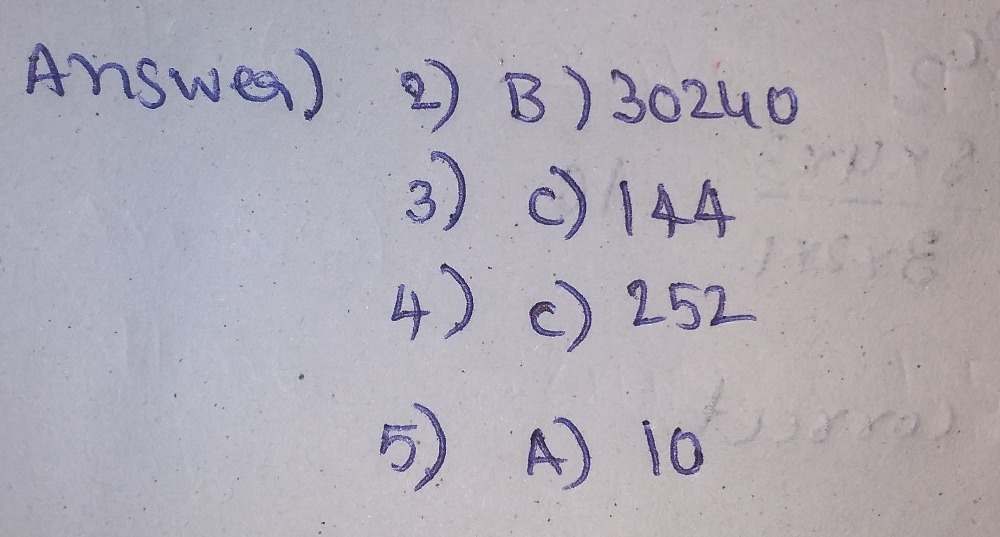 Answer) 2) B) 30240
3) C) 144
4) C) 252
5) A) 10